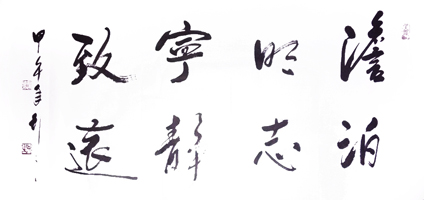 澹泊
明志
寧靜
致遠
甲午年